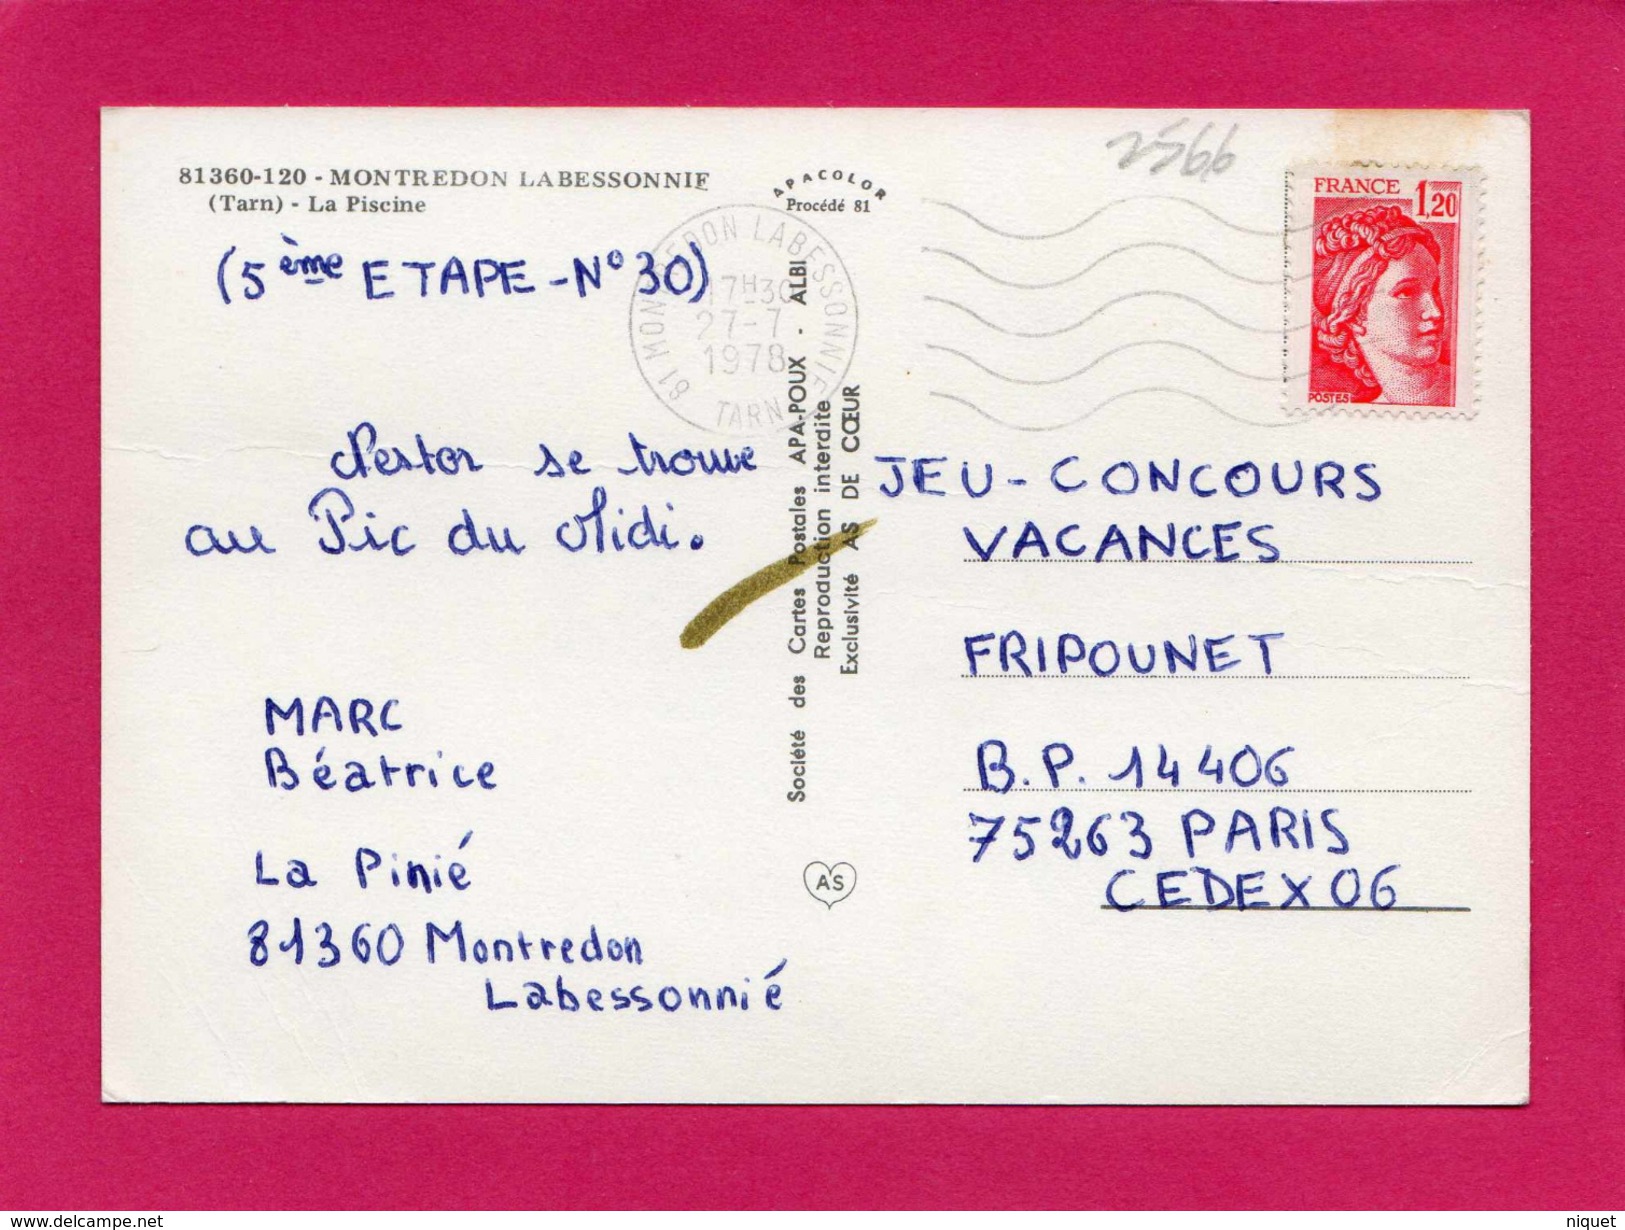 2566
81360-120 - MONTREDON LABESSONNIE
(Tarn) - La Piscine
APACOLOR
Procédé 81
FRANCE 1,20
POSTES
(5ème ETAPE - N° 30)
81 MONTREDON LABESSONNIE
17H30
27-7
1978
TARN
Nestor se trouve
au Pic du Midi.
MARC
Béatrice
La Pinié
81360 Montredon
Labessonnié
Société des Cartes Postales APA-POUX - ALBI
Reproduction interdite
Exclusivité AS DE CŒUR
AS
JEU-CONCOURS
VACANCES
FRIPOUNET
B.P. 14406
75263 PARIS
CEDEX 06
delcampe.net
niquet